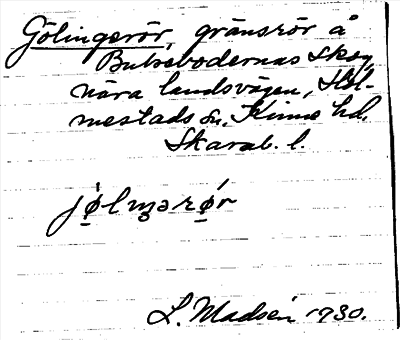 Gölingsrör, gränsrör å
Butsebodernas skog,
nära landsvägen, Höl-
mestads sn, Kinne hd,
Skarab. l.
L. Madsén 1930.